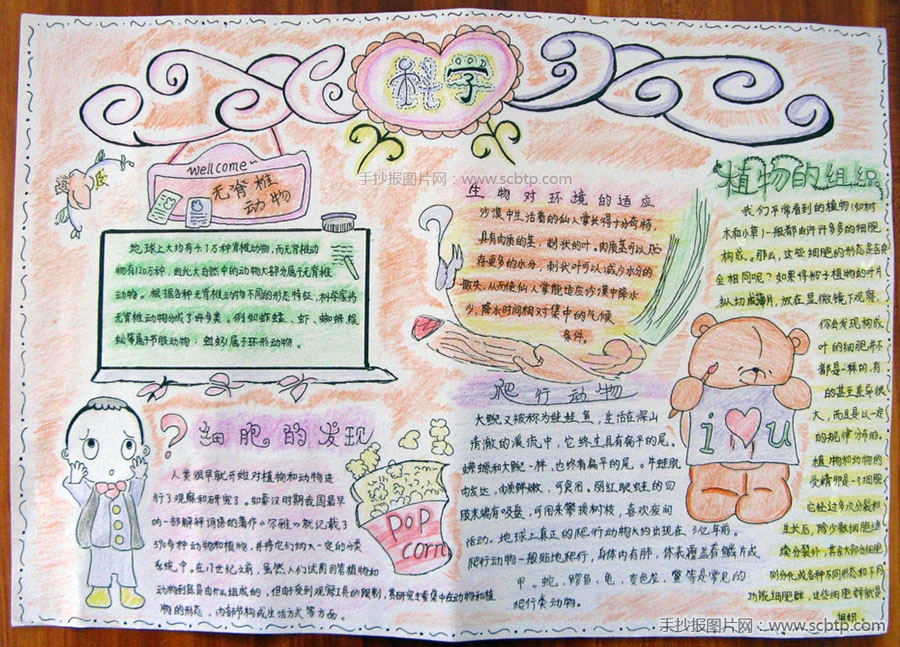 科学
wellcome~
无脊椎
动物
手抄报图片网:www.scbtp.com
地球上大约有4.7万种脊椎动物,而无脊椎动
物有120万种,因此大自然中的动物大部分属于无脊椎
动物。根据各种无脊椎动物不同的形态特征,科学家将
无脊椎动物分成了许多类。例如蚱蜢、虾、蜘蛛、蜈
蚣等属节肢动物;蚯蚓属于环形动物。
生物对环境的适应
沙漠中生活着的仙人掌长得十分奇特,
具有肉质的茎,刺状的叶。肉质茎可以贮
存更多的水分,刺状叶可以减少水分的
散失,从而使仙人掌能适应沙漠中降水
少,降水时间相对集中的气候
条件。
植物的组织
我们平常看到的植物(如树
木和小草)一般都由许许多多的细胞
构成。那么,这些细胞的形态是否完
全相同呢?如果你把子植物的叶片
纵切成薄片,放在显微镜下观察,
你会发现构成
叶的细胞并不
都是一样的,有
的甚至差异很
大,而且是以一定
的规律分布的。
植物和动物的
受精卵是一个细胞
它经过多次分裂和
生长后,除少数细胞继
续分裂外,其余大部分细胞
则分化成各种不同形态和不同
功能细胞群,这些细胞群就是
组织。
i u
?细胞的发现
人类很早就开始对植物和动物进
行了观察和研究了。如秦汉时期我国最早
的一部解释词语的著作《尔雅》就记载了
590多种动物和植物,并将它们纳入一定的分类
系统中。在17世纪之前,虽然人们试图回答植物和
动物到底是由什么组成的,但由于受到观察工具的限制,其研究主要集中在动物和植
物的形态、内部节构或生活方式等方面。
POP
corn
爬行动物
大鲵又被称为娃娃鱼,生活在深山
清澈的溪流中,它终生具有扁平的尾。
蝾螈和大鲵一样,也终有扁平的尾。牛蛙肌
肉发达,肉质鲜嫩,可食用。丽红眼蛙的四
肢末端有吸盘,可用来攀援树枝,喜欢夜间
活动。地球上真正的爬行动物大约出现在3亿年前。
爬行动物一般贴地爬行,身体内有肺,体表覆盖着鳞片或
甲。蛇、鳄鱼、龟、变色龙、鳖等是常见的
爬行类动物。
手抄报图片网:www.scbtp.com